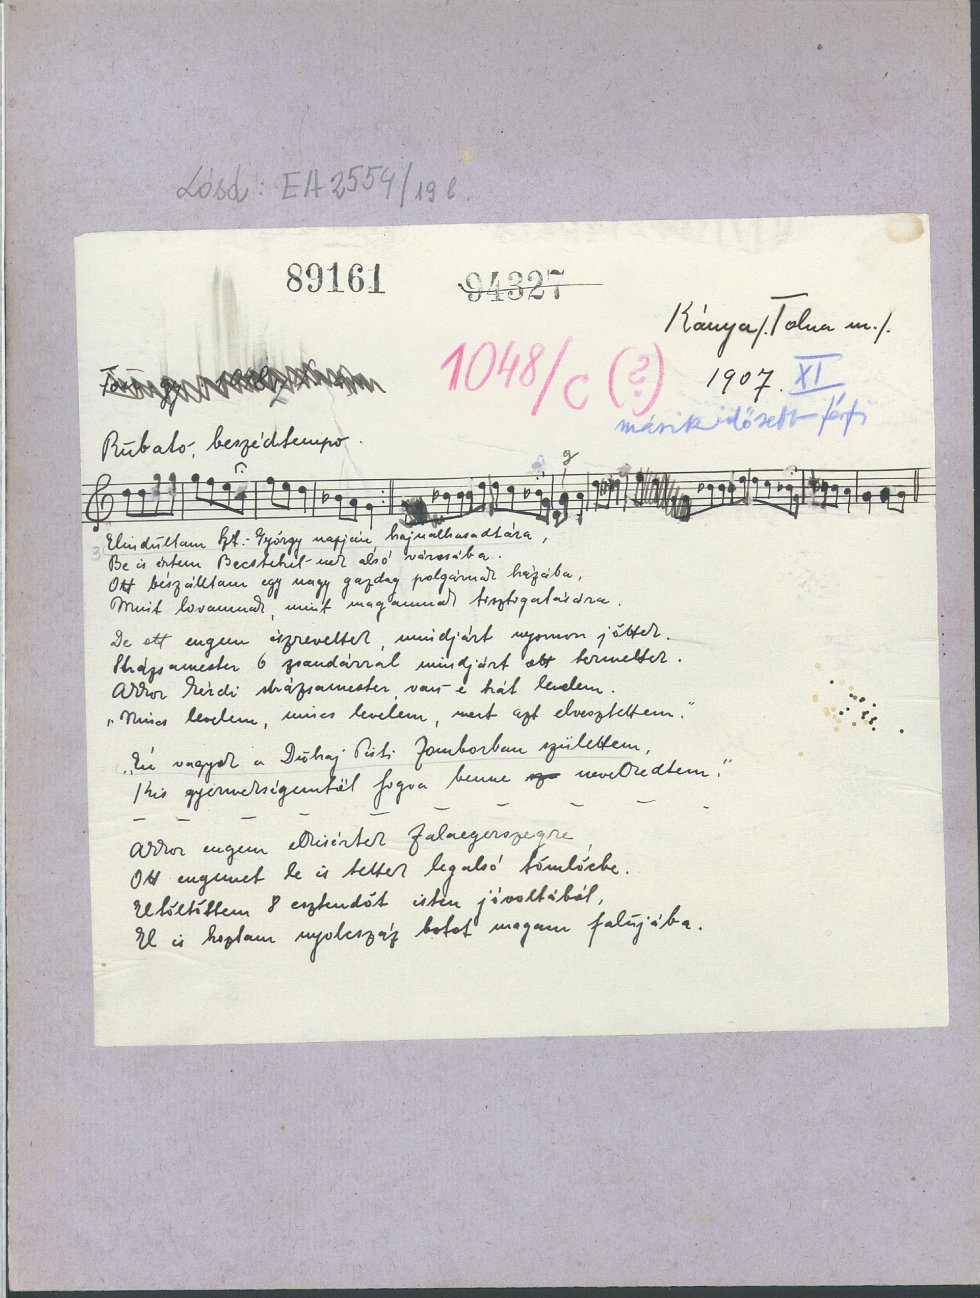 Lásd: EA 2554/19 l.
89161
94327
Kánya /.Tolna m./.
1048/c (?)
1907. XI
másik idősebb férfi
Rubato, beszédtempo.
g
3
Elindultam Szt.-György napján hajnalhasadtára,
Be is értem Becstehel-nek alsó városába.
Ott beszálltam egy nagy gazdag polgárnak házába,
Mint lovamnak, mint magamnak tisztogatására.
De ott engem észrevettek, mindjárt nyomon jöttek.
Strázsamester 6 zsandárral mindjárt ott termettek.
Akkor kérdi strázsamester, van-é hát levelem.
„Nincs levelem, nincs levelem, mert azt elvesztettem."
„Én vagyok a Duhaj Pisti Zomborban születtem,
Kis gyermekségemtől fogva benne nevelkedtem."
Akkor engem elkisértek Zalaegerszegre,
Ott engemet le is tettek legalsó tömlöcbe.
Eltöltöttem 8 esztendőt isten jóvoltából,
El is hoztam nyolcszáz botot magam falujába.